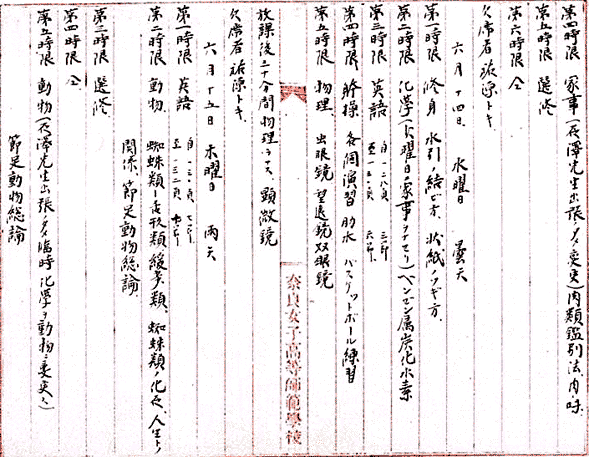 第四時限 家事(長澤先生出張ノタメ変更)肉類鑑別法、肉ノ味
第五時限 選修
第六時限 仝
欠席者 萩原トキ
六月十四日 水曜日 曇天
第一時限 修身 水引ノ結ビ方、状紙ノツギ方
第二時限 化學(火曜日ノ家事ヲナセリ)ベンゼン属炭化水素
第三時限 英語
第四時限 体操 各個演習 助木 バスケットボール練習
第五時限 物理 出眼鏡 望遠鏡 双眼鏡
奈良女子高等師範學校
放課後三十分間物理ヲナス 顕微鏡
欠席者 萩原トキ
六月十五日 木曜日 雨天
第一時限 英語
第二時限 動物 蜘蛛類ノ舌形類、緩歩類、蜘蛛類ノ化石、人生トノ
関係、節足動物総論
第三時限 選修
第四時限 仝
第五時限 動物(長澤先生出張ノタメ臨時化學ヲ動物ニ変更ス)
節足動物総論